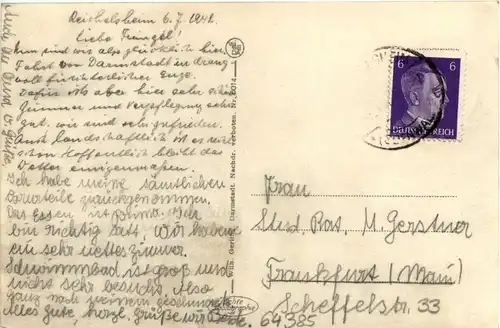 Reichelsheim 6.7.1942.
Liebe
Nun sind wir also glücklich hier.
Fahrt von Darmstadt in drang-
voll fürchterlicher Enge.
Dafür ists aber hier sehr schön
Zimmer und Verpflegung sehr
gut, wir sind sehr zufrieden.
Auch landschaftlich ist es recht
schön. Hoffentlich bleibt das
Wetter einigermassen.
Ich habe meine sämtlichen
Vorurteile zurückgenommen.
Das Essen ist prima. Ich
bin richtig satt, wir haben
ein sehr nettes Zimmer.
Schwimmbad ist groß und
nicht sehr besucht. Also
ganz nach meinem Geschmack.
Alles Gute, herzl. Grüße
Wilh. Gerling, Darmstadt. Nachdr. verboten. Nr.
6 6
DEUTSCHES REICH
Frau
Stud. Rat. M. Gerstner
Frankfurt (Main)
Scheffelstr. 33
64385